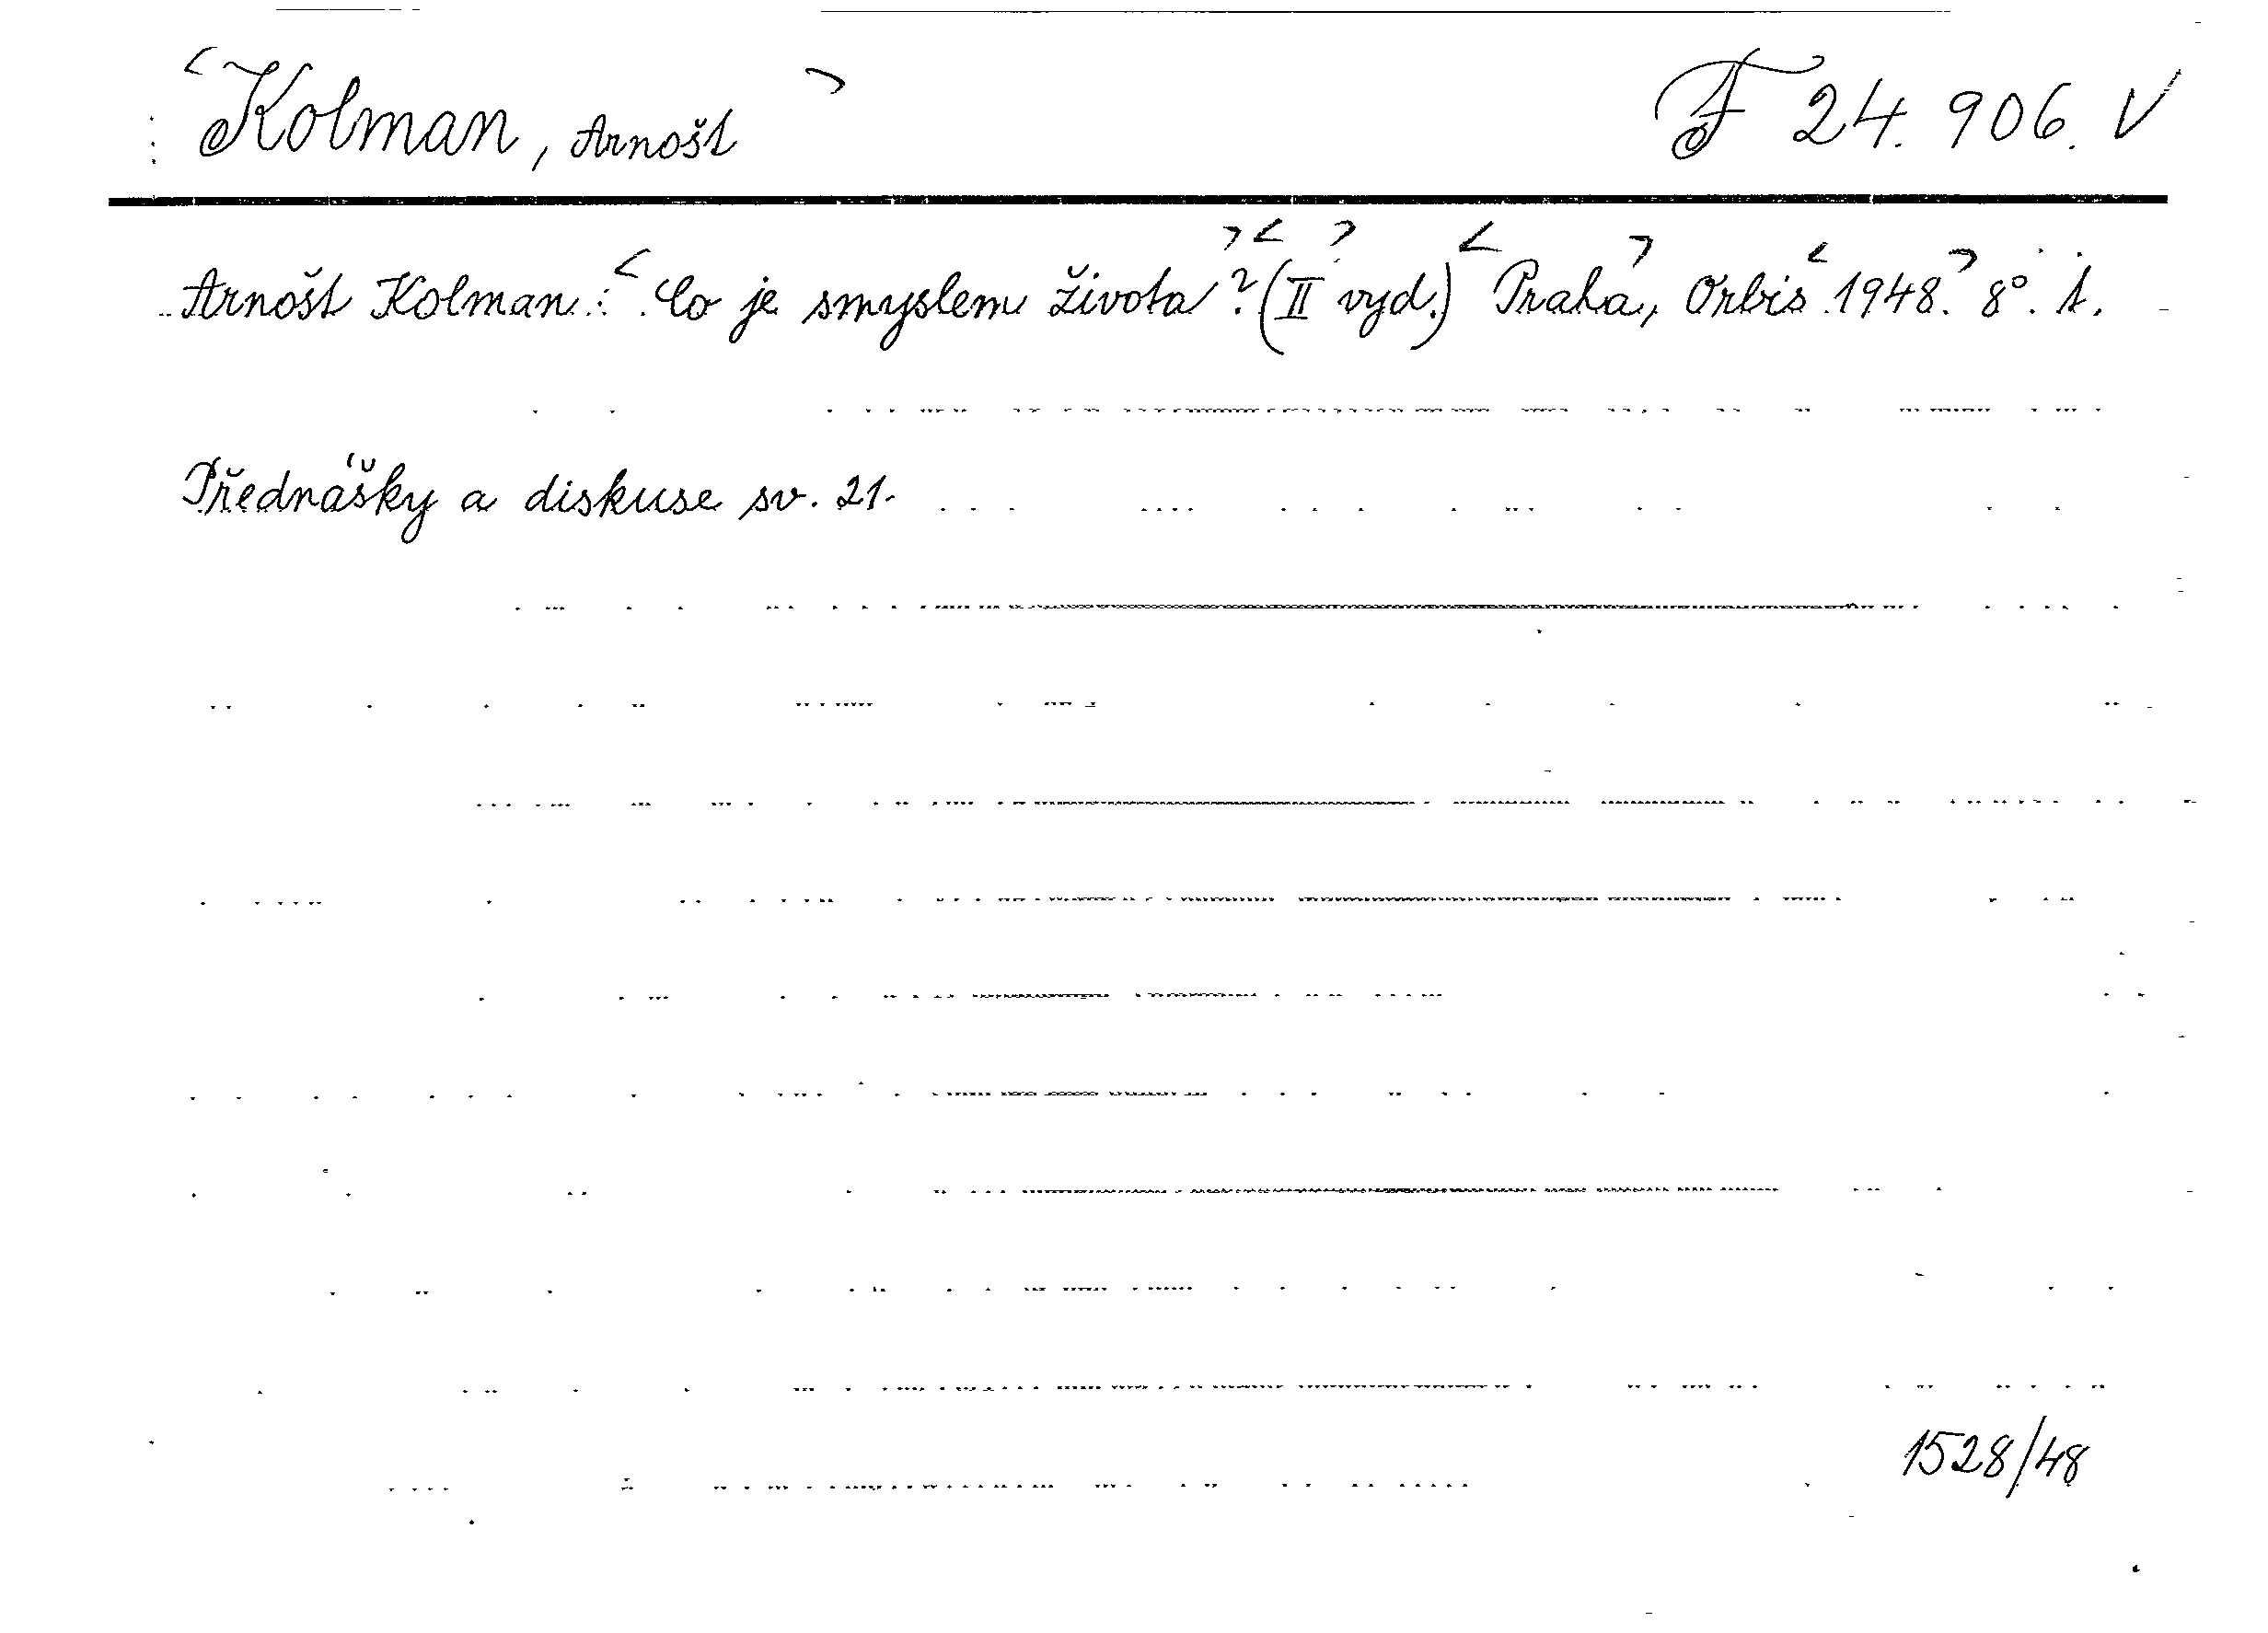 <Kolman, Arnošt> F 24.906. V
Arnošt Kolman: <Co je smyslem života?> <(II vyd.)> <Praha>, Orbis <1948.> 8°. t.
Přednášky a diskuse sv. 21.
1528/48